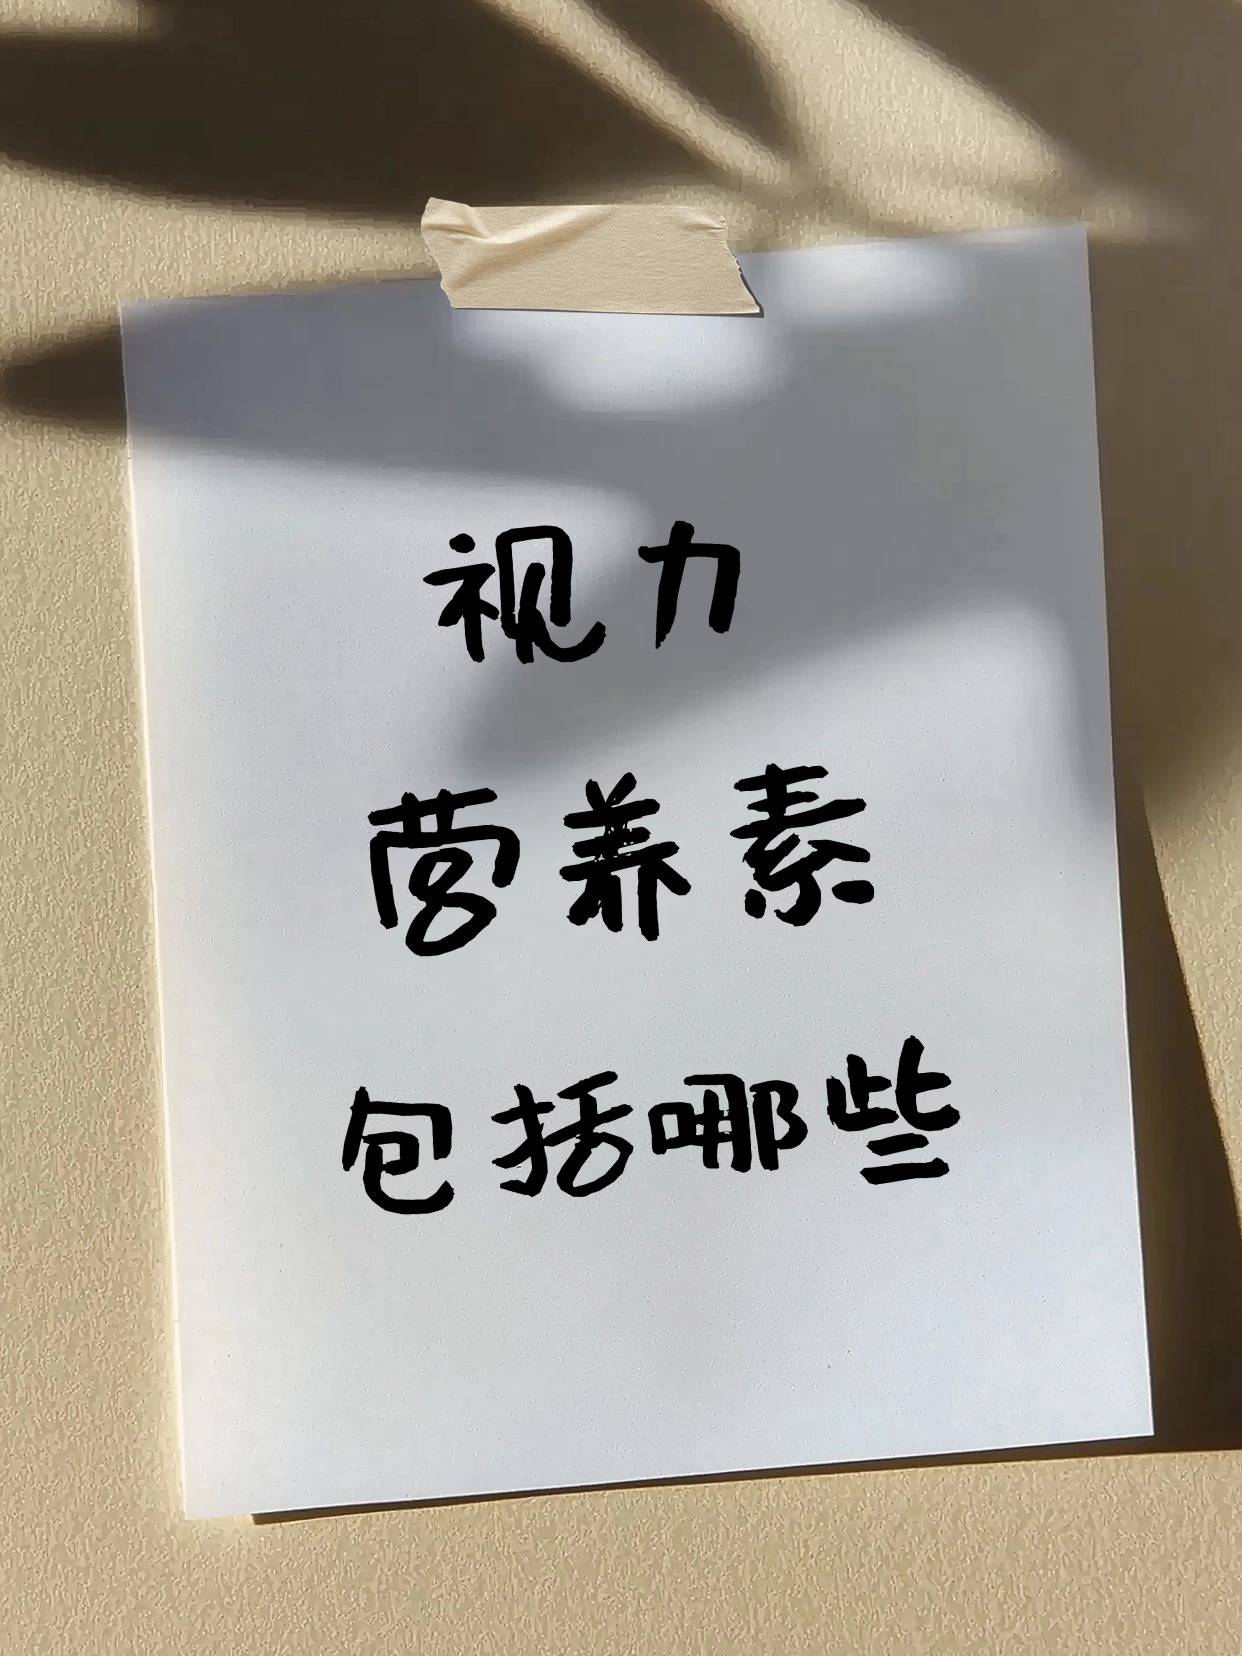 视力
营养素
包括哪些